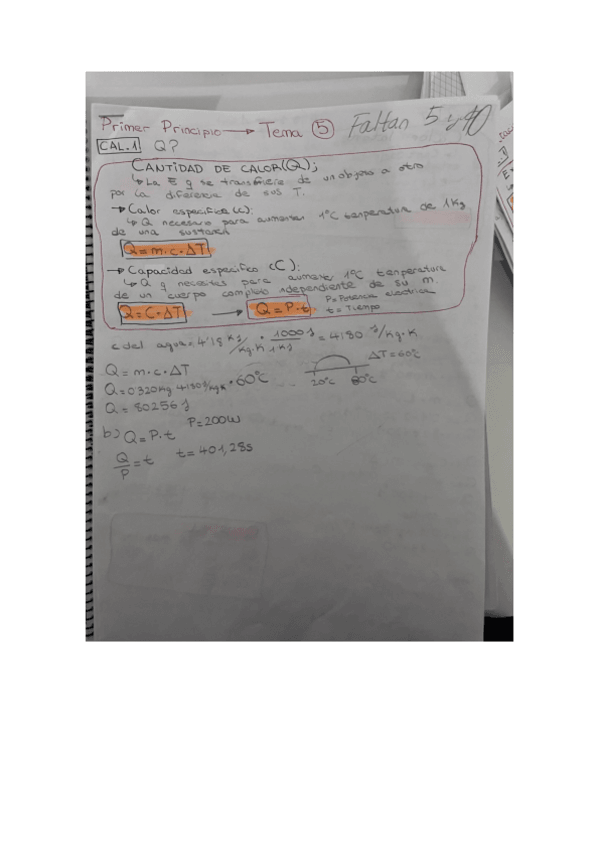 Primer Principio → Tema 5 Faltan 5 y 10
CAL.1 Q?
CANTIDAD DE CALOR (Q);
↳ La E q se transfiere de un objeto a otro
por la diferencia de sus T.
→ Calor especifico (c):
↳ Q necesario para aumentar 1°C temperatura de 1 Kg
de una sustancia
Q = m·c·ΔT
→ Capacidad especifica (C):
↳ Q q necesites para aumentar 1°C temperatura
de un cuerpo completo independiente de su m.
Q = C·ΔT → Q = P·t P = Potencia electrica
t = Tiempo
c del agua = 4'18 KJ/Kg·K · 1000 J/1 KJ = 4180 J/Kg·K
Q = m·c·ΔT ΔT = 60°C
Q = 0'320 Kg 4180 J/Kg K · 60°C 20°C 80°C
Q = 80256 J
b) Q = P·t P = 200W
Q/P = t t = 401,28s